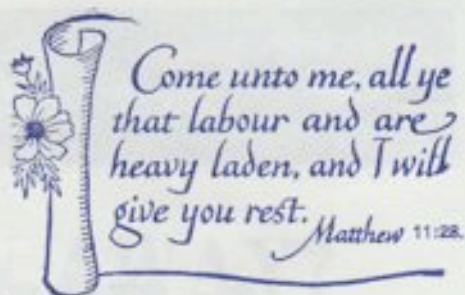 Come unto me, all ye
that labour and are
heavy laden, and I will
give you rest.
Matthew 11:28.